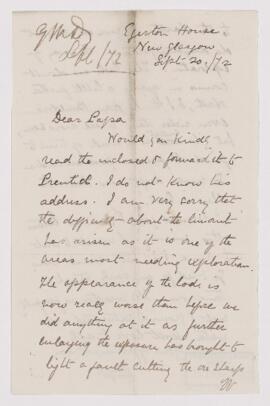 GMD
Sept /72
Egerton House
New Glasgow
Sept. 20. /72
Dear Papa
Would you kindly
read the inclosed & forward it to
Prentice. I do not know his
address. I am very sorry that
the difficulty about the
has arisen as it is one of the
areas most needing exploration.
The appearance of the lode is
now really worse than before we
did anything at it as further
enlarging the exposure has brought to
light a fault cutting the ore sharp